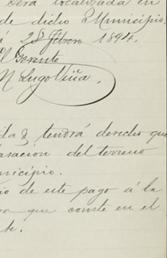 Obra localizada en
de dicho Municipio.
á 28 Febro. 1894.
El Gerente
N Lugo Viña.
da á tendrá derecho que
aración del terreno
nicipio.
io de este pago á la
que conste en el